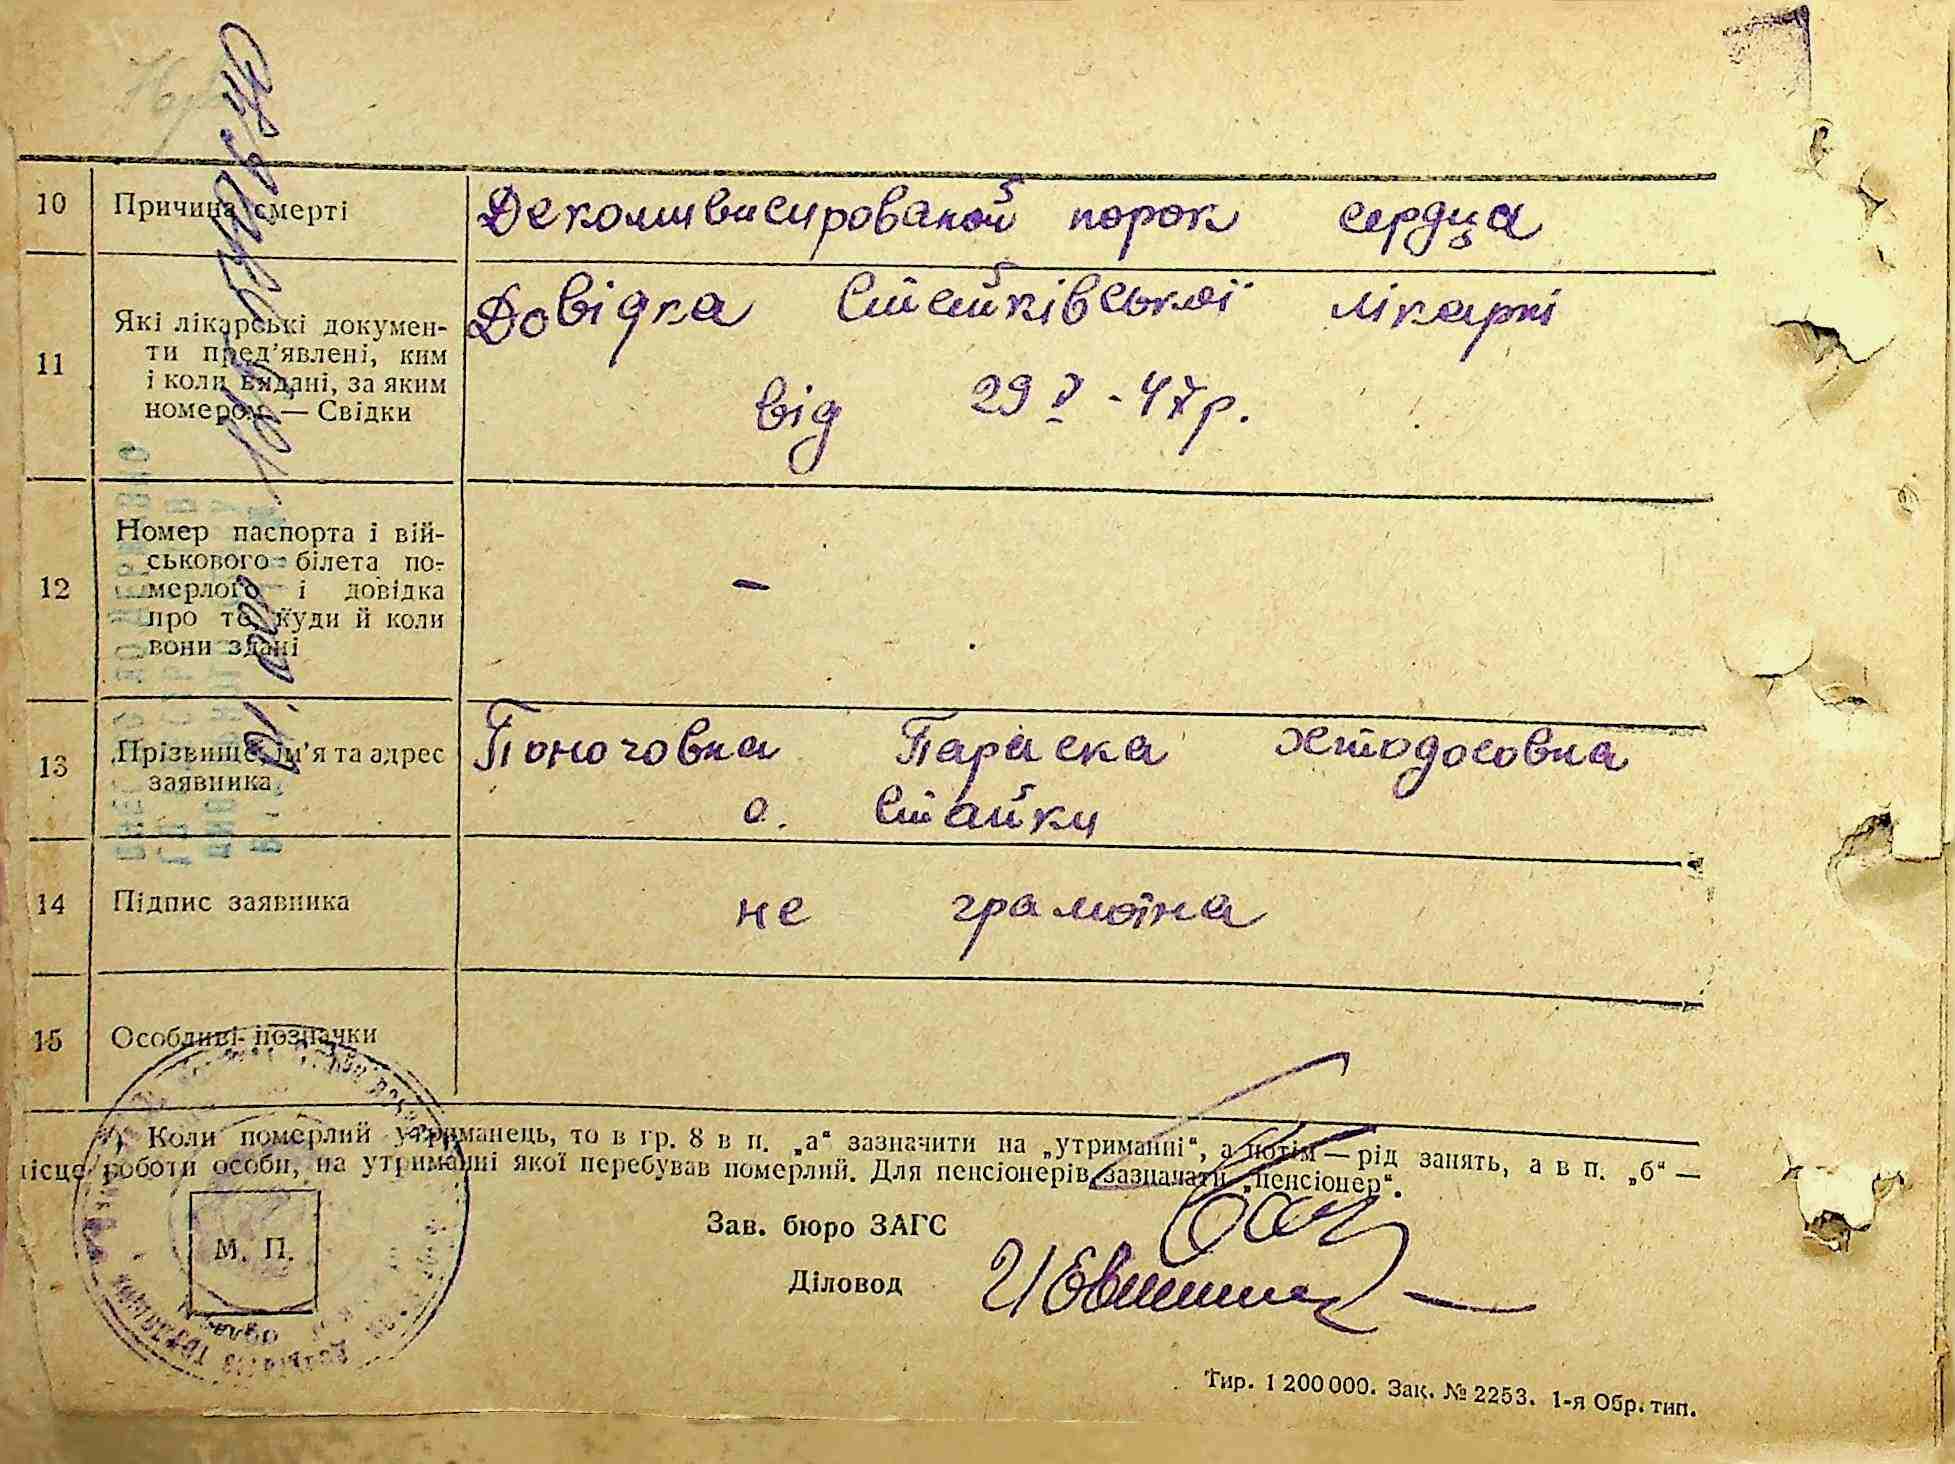 10 Причина смерті Декомпвисированой порок сердца
11 Які лікарські докумен-
ти пред’явлені, ким
і коли видані, за яким
номером — Свідки
Довідка Стайківської лікарні
від 29 V - 47 р.
12 Номер паспорта і вій-
ськового білета по-
мерлого і довідка
про те, куди й коли
вони здані
-
13 Прізвище, ім’я та адрес
заявника
Поночовна Параска Хтодосовна
с. Стайки
14 Підпис заявника не грамотна
15 Особливі позначки
) Коли померлий утриманець, то в гр. 8 в п. „а“ зазначити на „утриманні“, а потім — рід занять, а в п. „б“ —
місце роботи особи, на утриманні якої перебував померлий. Для пенсіонерів зазначати „пенсіонер“.
Зав. бюро ЗАГС
Діловод
М. П.
Тир. 1 200 000. Зак. № 2253. 1-я Обр. тип.